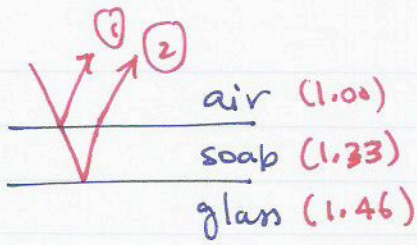 ① ②
air (1.00)
soap (1.33)
glass (1.46)